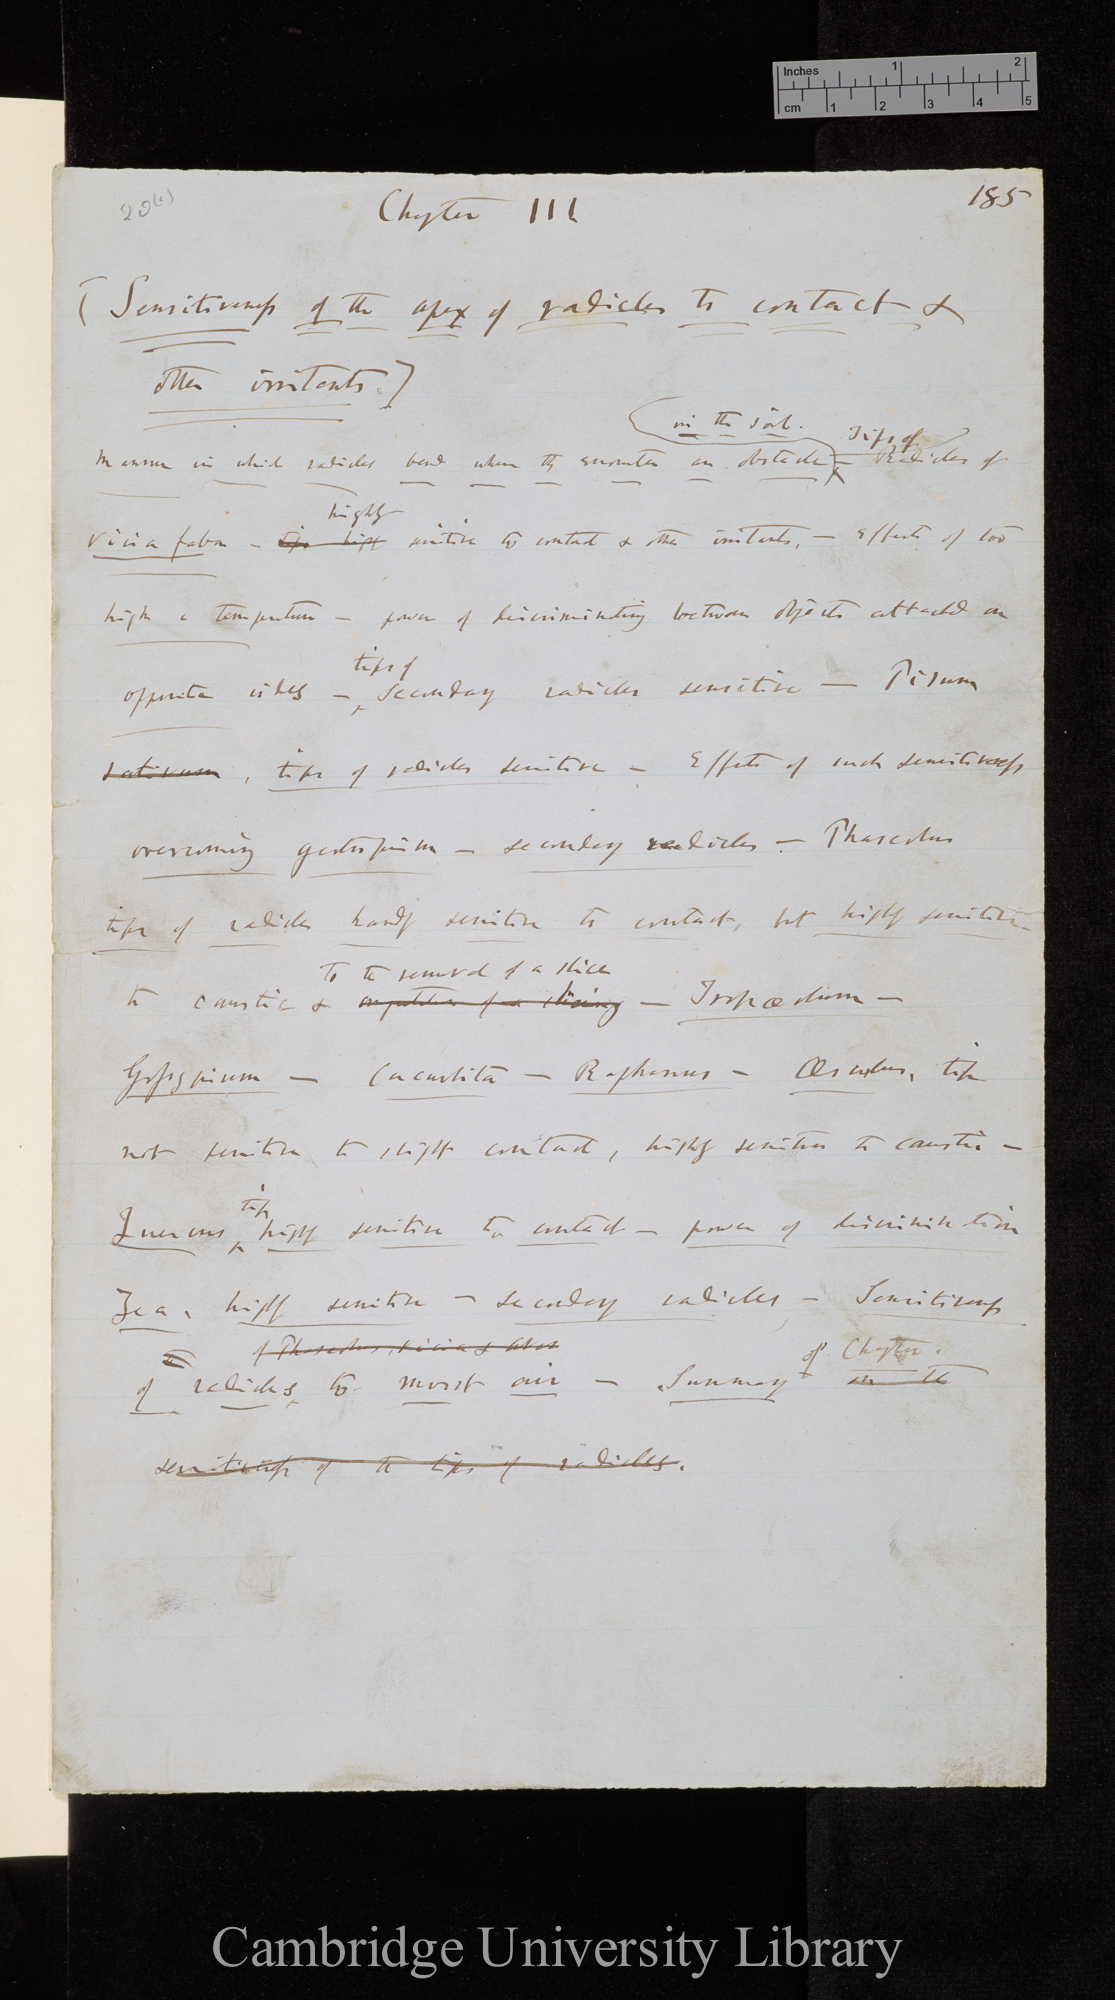 Inches 1 2
cm 1 2 3 4 5
20(1)
Chapter III
185
[Sensitiveness of the apex of radicles to contact &
other irritants.]
in the soil. Tips of
Manner in which radicles bend when they encounter an obstacle — Radicles of
highly
Vicia faba — tips high sensitive to contact & other irritants, — Effects of too
high a temperature — power of discriminating between objects attached on
tips of
opposite sides — Secondary radicles sensitive — Pisum
sativum, tips of radicles sensitive — Effects of such sensitiveness
overcoming geotropism — secondary radicles — Phaseolus
tips of radicles hardly sensitive to contact, but highly sensitive
to the removal of a slice
to caustic & amputation of a slicing — Tropæolum —
Gossypium — Cucurbita — Raphanus — Æsculus, tip
not sensitive to slight contact, highly sensitive to caustic —
tip
Quercus, highly sensitive to contact — power of discrimination
Zea, highly sensitive — secondary radicles — Sensitiveness
of Phaseolus, Vicia & of Chapter.
of radicles to moist air — Summary on the
sensitiveness of the tips of radicles.
Cambridge University Library